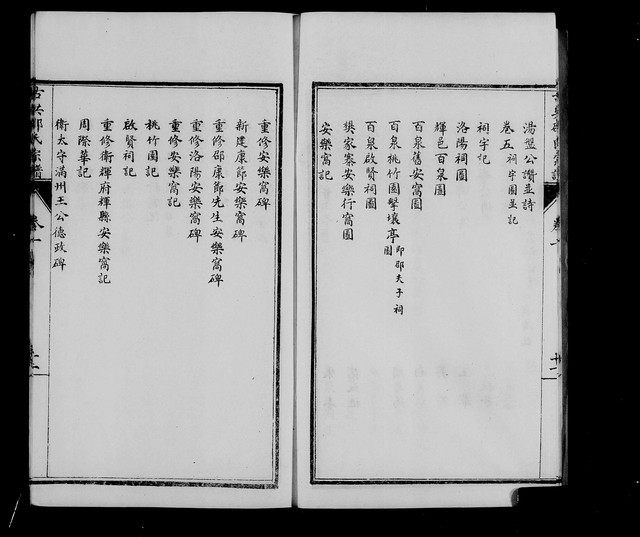 湯盤公讚並詩
卷五 祠宇圖並記
祠宇記
洛陽祠圖
輝邑百泉圖
百泉舊安窩圖
百泉桃竹園擊壤亭圖 即邵夫子祠
百泉啟賢祠圖
獎家寨安樂行窩圖
安樂窩記
重修安樂窩碑
新建康節安樂窩碑
重修邵康節先生安樂窩碑
重修洛陽安樂窩碑
重修安樂窩記
桃竹園記
啟賢祠記
重修衛輝府輝縣安樂窩記
周際華記
衛太守滿州王公德政碑
古共邵氏宗譜
卷一